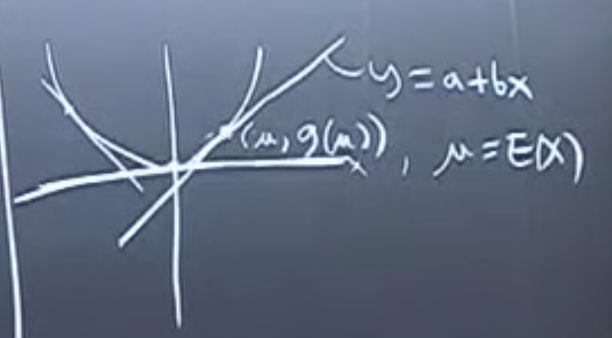 y = a+bx
(μ, g(μ)), μ = E(X)
x